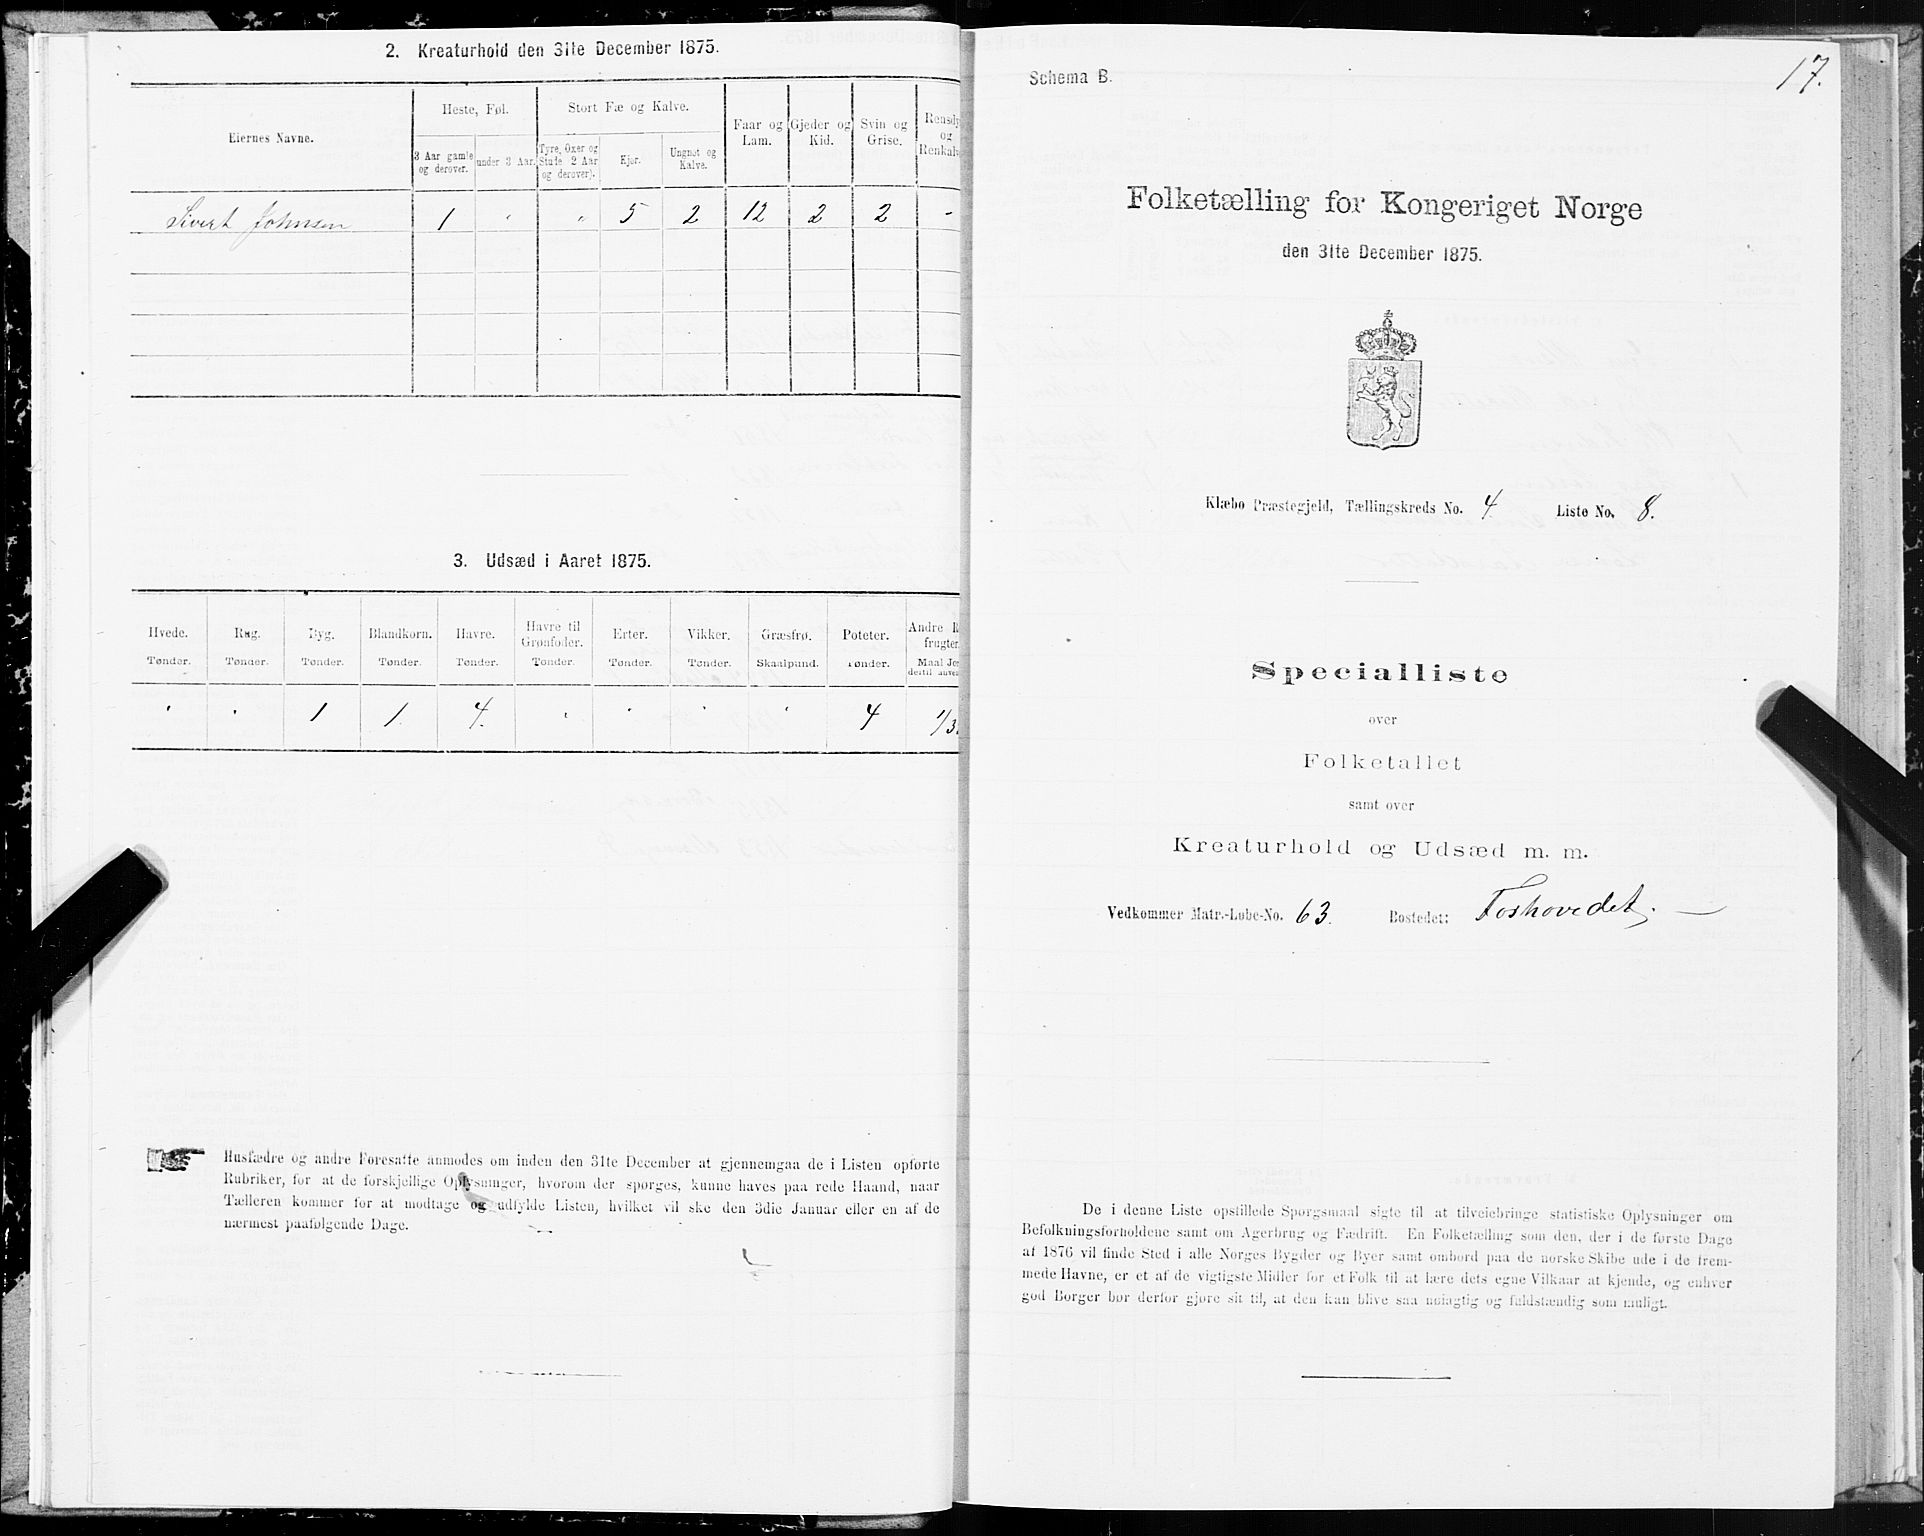 2. Kreaturhold den 31te December 1875.
Eiernes Navne.
Heste, Føl.
Stort Fæ og Kalve.
Faar og Lam.
Gjeder og Kid.
Svin og Grise.
Rensdy
og
Renkalv
3 Aar gamle og derover.
under 3 Aar.
Tyre, Oxer og Stude 2 Aar og derover).
Kjør.
Ungnøt og Kalve.
Sivert Johnsen 1 " " 5 2 12 2 2 -
3. Udsæd i Aaret 1875.
Hvede. Rug. Byg. Blandkorn. Havre. Havre til Grønfoder. Erter. Vikker. Græsfrø. Poteter. Andre R
frugter
Tønder. Tønder. Tønder. Tønder. Tønder. Tønder. Tønder. Tønder. Skaalpund. Tønder. Maal Jo
dertil anve
" " 1 1 4. " " " " 4 1/3.
Husfædre og andre Foresatte anmodes om inden den 31te December at gjennemgaa de i Listen opførte
Rubriker, for at de forskjellige Oplysninger, hvorom der spørges, kunne haves paa rede Haand, naar
Tælleren kommer for at modtage og udfylde Listen, hvilket vil ske den 3die Januar eller en af de
nærmest paafølgende Dage.
17.
Schema B.
Folketælling for Kongeriget Norge
den 31te December 1875.
Klæbo Præstegjeld, Tællingskreds No. 4. Liste No. 8.
Specialliste
over
Folketallet
samt over
Kreaturhold og Udsæd m. m.
Vedkommer Matr.-Lobe-No. 63. Bostedet: Foshovedet.
De i denne Liste opstillede Spørgsmaal sigte til at tilveiebringe statistiske Oplysninger om
Befolkningsforholdene samt om Agerbrug og Fædrift. En Folketælling som den, der i de første Dage
af 1876 vil finde Sted i alle Norges Bygder og Byer samt ombord paa de norske Skibe ude i de frem-
mede Havne, er et af de vigtigste Midler for et Folk til at lære dets egne Vilkaar at kjende, og enhver
god Borger bør derfor gjøre sit til, at den kan blive saa nøiagtig og fuldstændig som muligt.